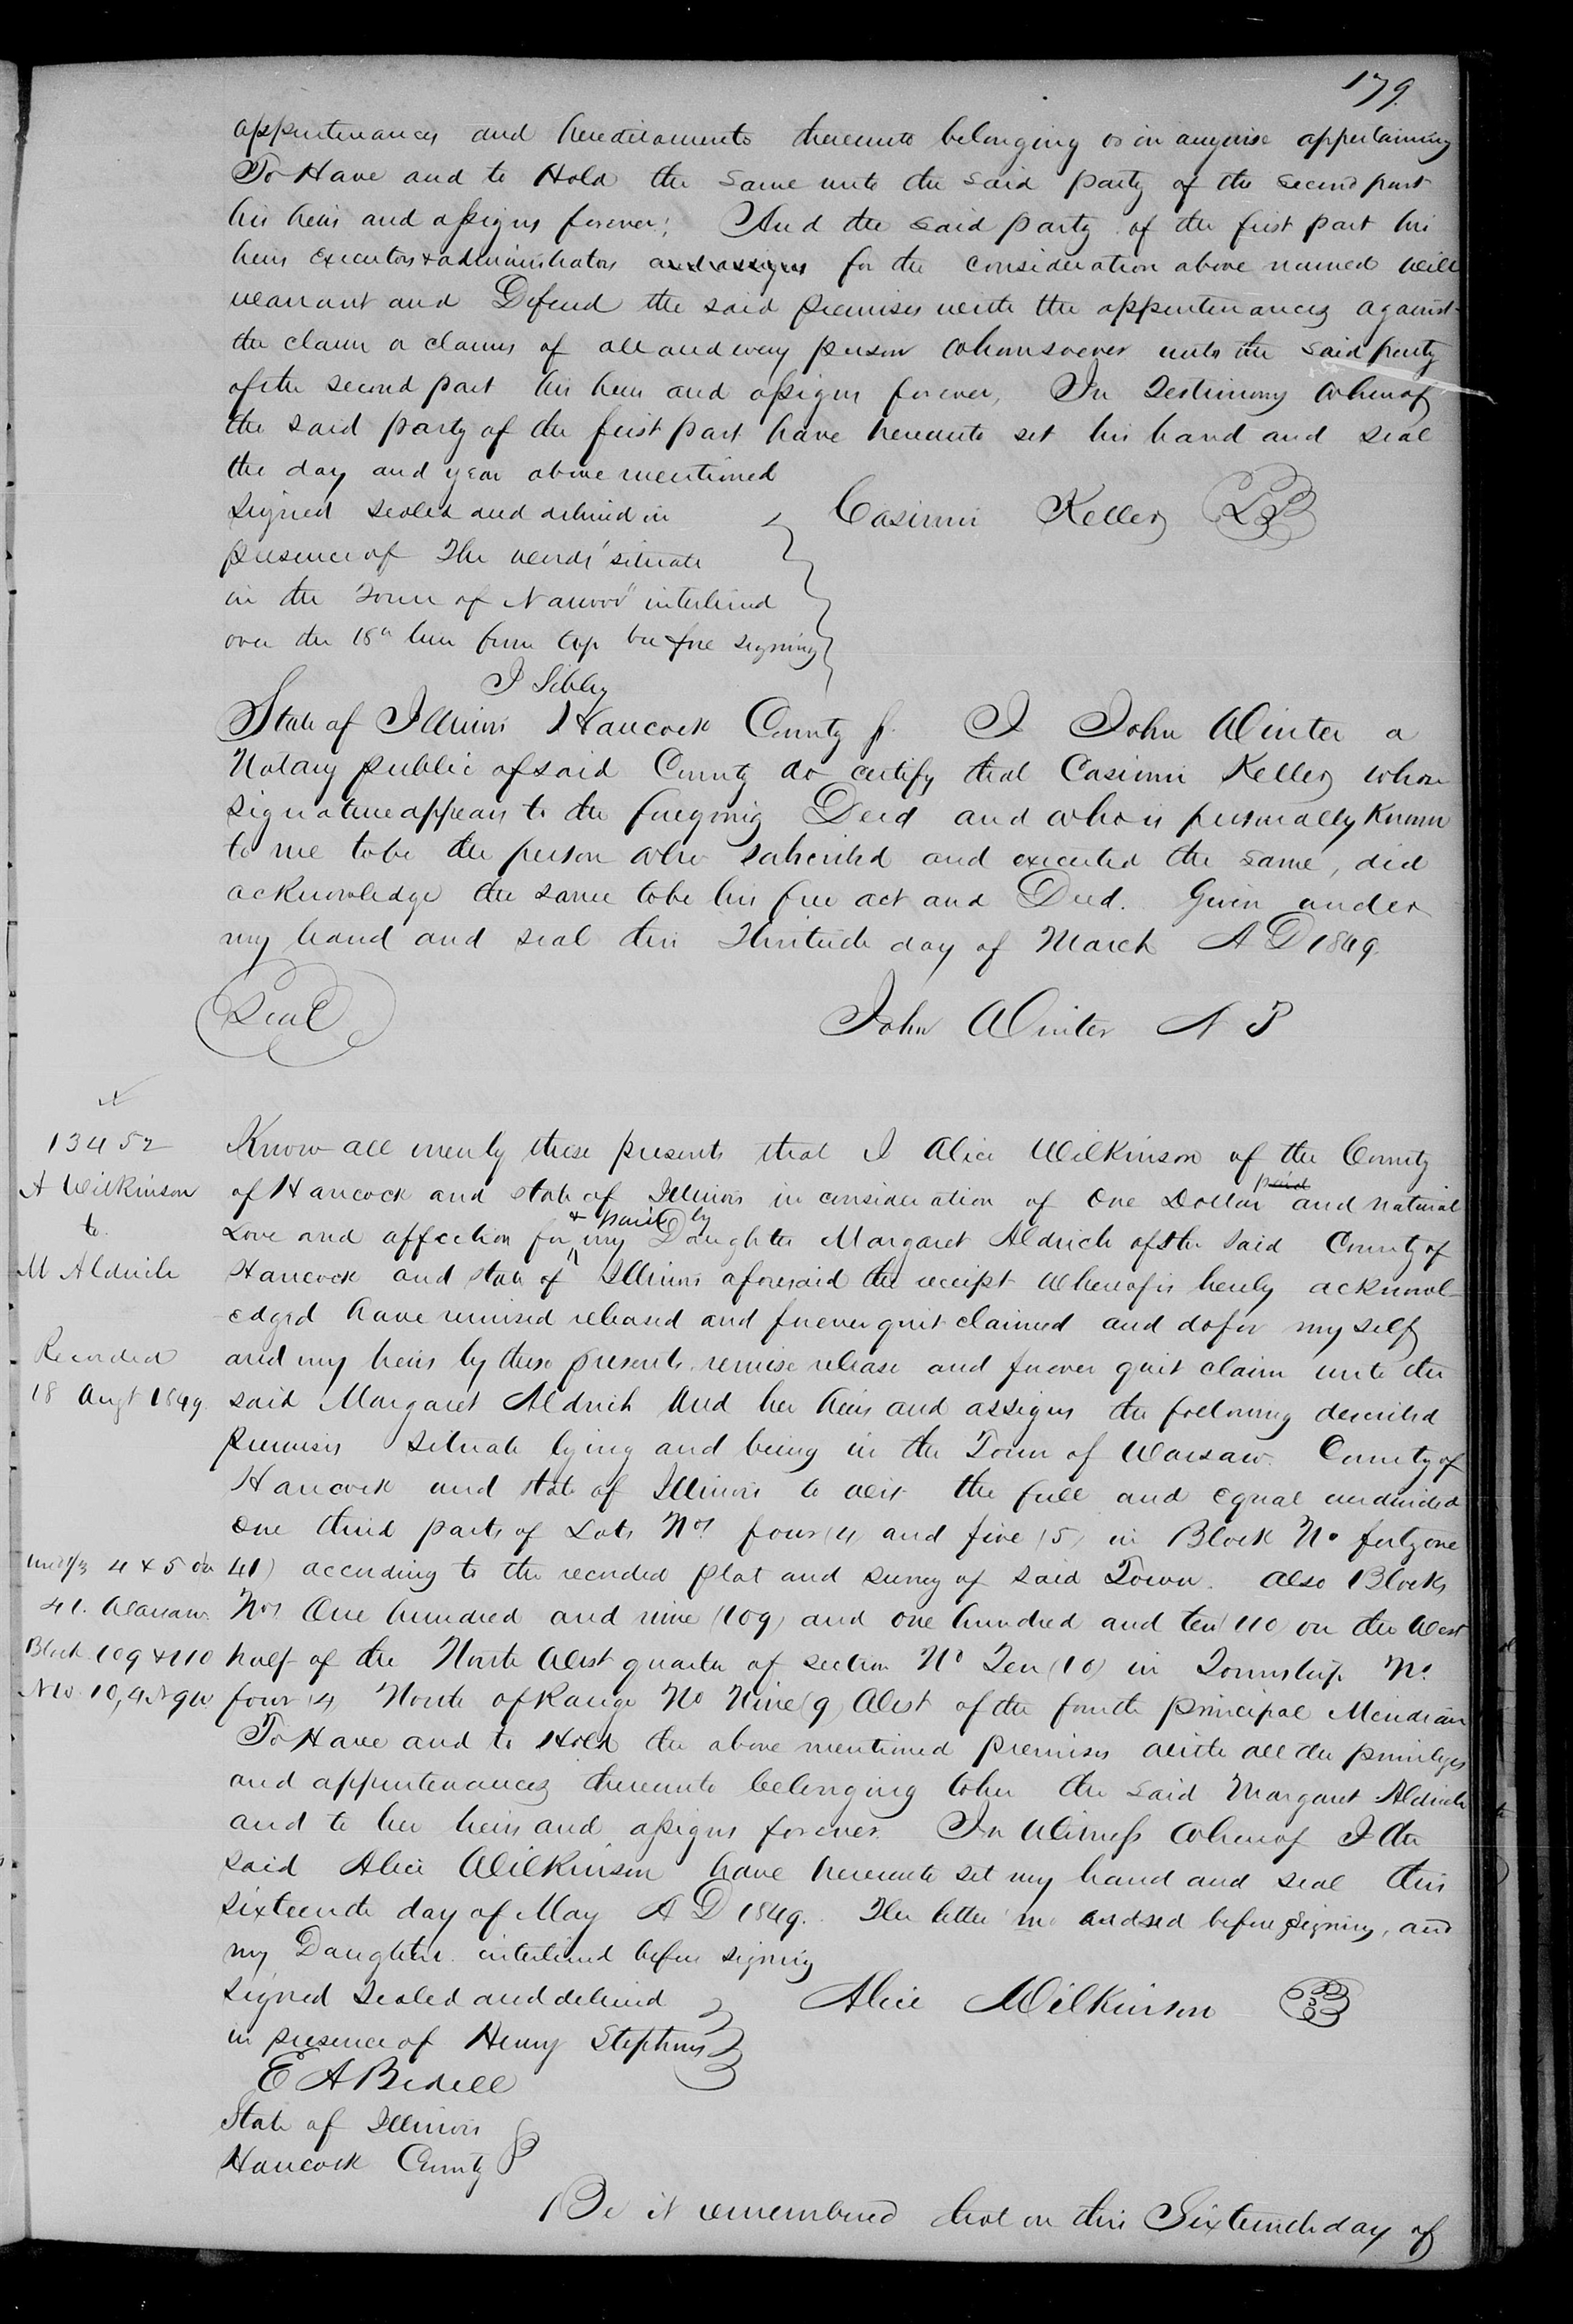 179.
appurtenances and hereditaments thereunto belonging or in anywise appertaining
To Have and to Hold the same unto the said party of the second part
his heirs and assigns forever; And the said party of the first part his
heirs executors & administrators and assigns for the consideration above named will
warrant and Defend the said premises with the appurtenances against
the claim or claims of all and every person whomsoever unto the said party
of the second part his heirs and assigns forever, In Testimony whereof
the said party of the first part have hereunto set his hand and seal
the day and year above mentioned
signed sealed and delivered in
Casimir Keller LS
presence of The words "situate
in the Town of Nauvoo" interlined
over the 18th line from top before signing
I Sibley
State of Illinois Hancock County ss. I John Winter a
Notary public of said County do certify that Casimir Keller whose
signature appears to the foregoing Deed and who is personally known
to me to be the person who subscribed and executed the same, did
acknowledge the same to be his free act and Deed. Given under
my hand and seal this Thirtieth day of March A D 1849.
Seal
John Winter N P
13452
A Wilkinson
to
M Aldrich
Recorded
18 Augt 1849.
Know all men by these presents that I Alice Wilkinson of the County
of Hancock and state of Illinois in consideration of One Dollar paid and natural
Love and affection for & paid by my Daughter Margaret Aldrich of the said County of
Hancock and state of Illinois aforesaid the receipt whereof is hereby acknowl
edged have remised released and forever quit claimed and do for my self
and my heirs by these presents remise release and forever quit claim unto the
said Margaret Aldrich And her heirs and assigns the following described
premises situate lying and being in the Town of Warsaw. County of
Hancock and state of Illinois to wit the full and equal undivided
one third parts of Lots Nos four (4) and five (5) in Block No forty one
und 1/3 4 & 5
41. Warsaw.
Block 109 & 110
NW. 10, 4N 9W
41) according to the recorded plat and survey of said Town. Also Blocks
Nos One hundred and nine (109) and one hundred and ten (110 on the West
half of the North West quarter of section No Ten (10) in Township No.
four (4) North of Range No Nine (9) West of the fourth principal Meridian
To Have and to Hold the above mentioned premises with all the privileges
and appurtenances thereunto belonging to her the said Margaret Aldrich
and to her heirs and assigns forever. In Witness whereof I the
said Alice Wilkinson have hereunto set my hand and seal this
sixteenth day of May A D 1849. The letter before signing, and
my Daughter interlined before signing
signed sealed and delivered
Alice Wilkinson
in presence of Henry Stephens
E A Bedell
State of Illinois
Hancock County
Be it remembered that on this Sixteenth day of